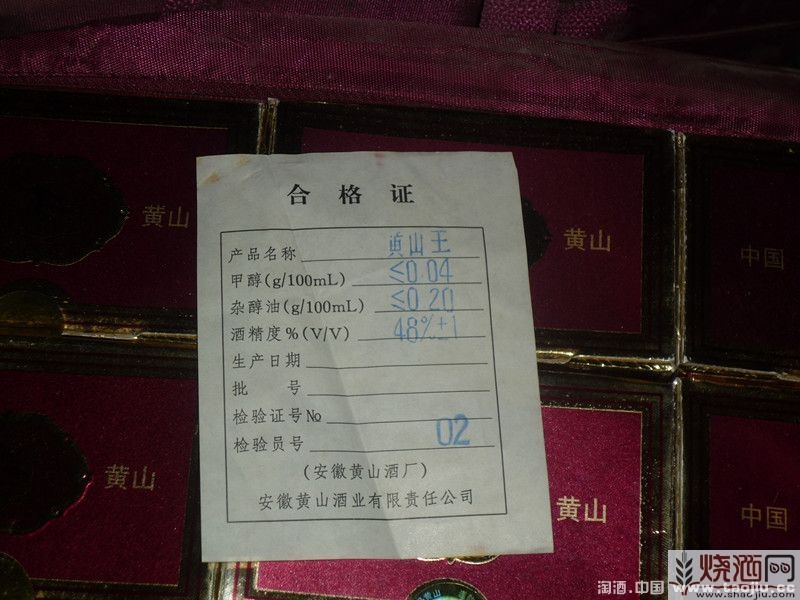 合格证
产品名称 黄山王
甲醇(g/100mL) ≤0.04
杂醇油(g/100mL) ≤0.20
酒精度%(V/V) 48%±1
生产日期
批 号
检验证号No
检验员号 02
(安徽黄山酒厂)
安徽黄山酒业有限责任公司
黄山
黄山
中国
黄山
黄山
中国
烧酒网
www.shaojiu.com
淘酒.中国